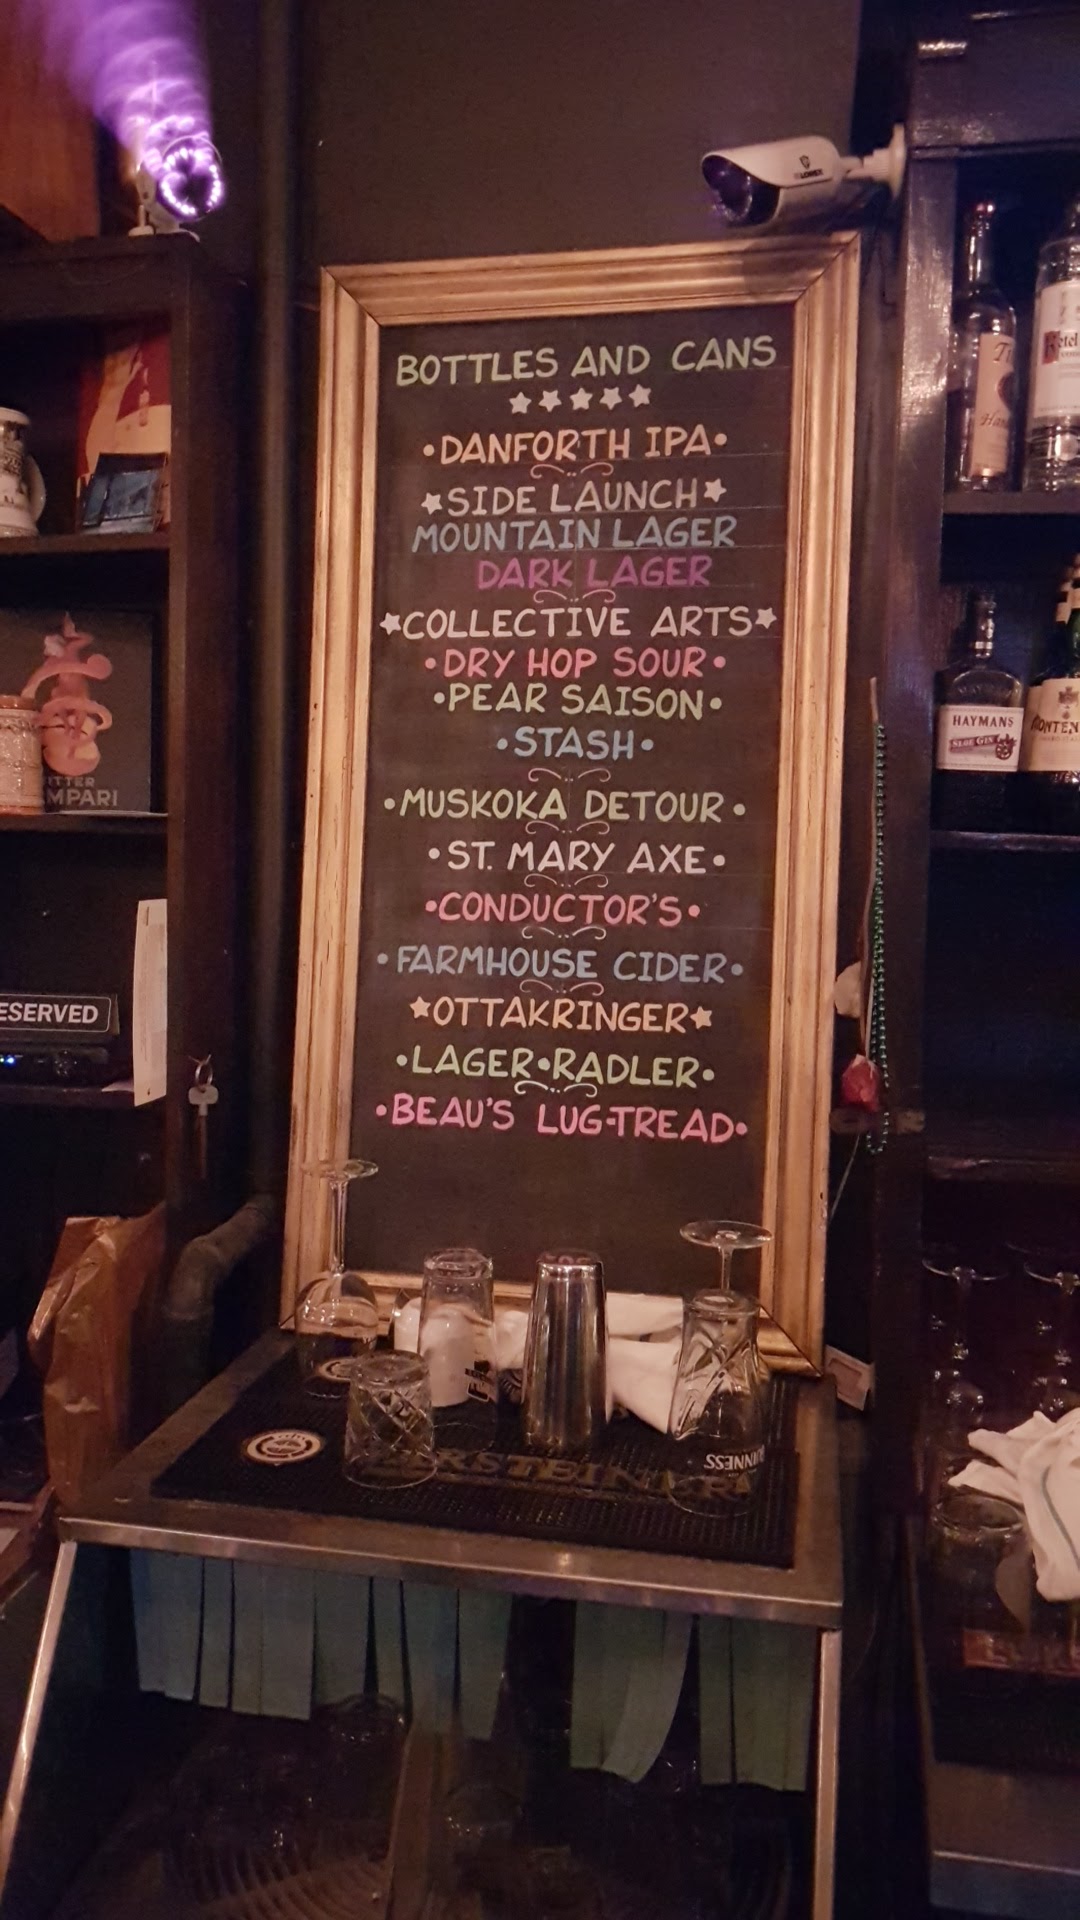 LOREX
BOTTLES AND CANS
•DANFORTH IPA•
★SIDE LAUNCH★
MOUNTAIN LAGER
DARK LAGER
★COLLECTIVE ARTS★
•DRY HOP SOUR•
•PEAR SAISON•
•STASH•
•MUSKOKA DETOUR•
•ST. MARY AXE•
•CONDUCTOR'S•
•FARMHOUSE CIDER•
★OTTAKRINGER★
•LAGER•RADLER•
•BEAU'S LUG-TREAD•
HAYMANS
SLOE GIN
ESERVED
MPARI